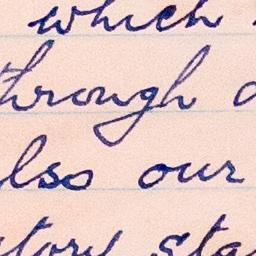 which
through
also our
story sta